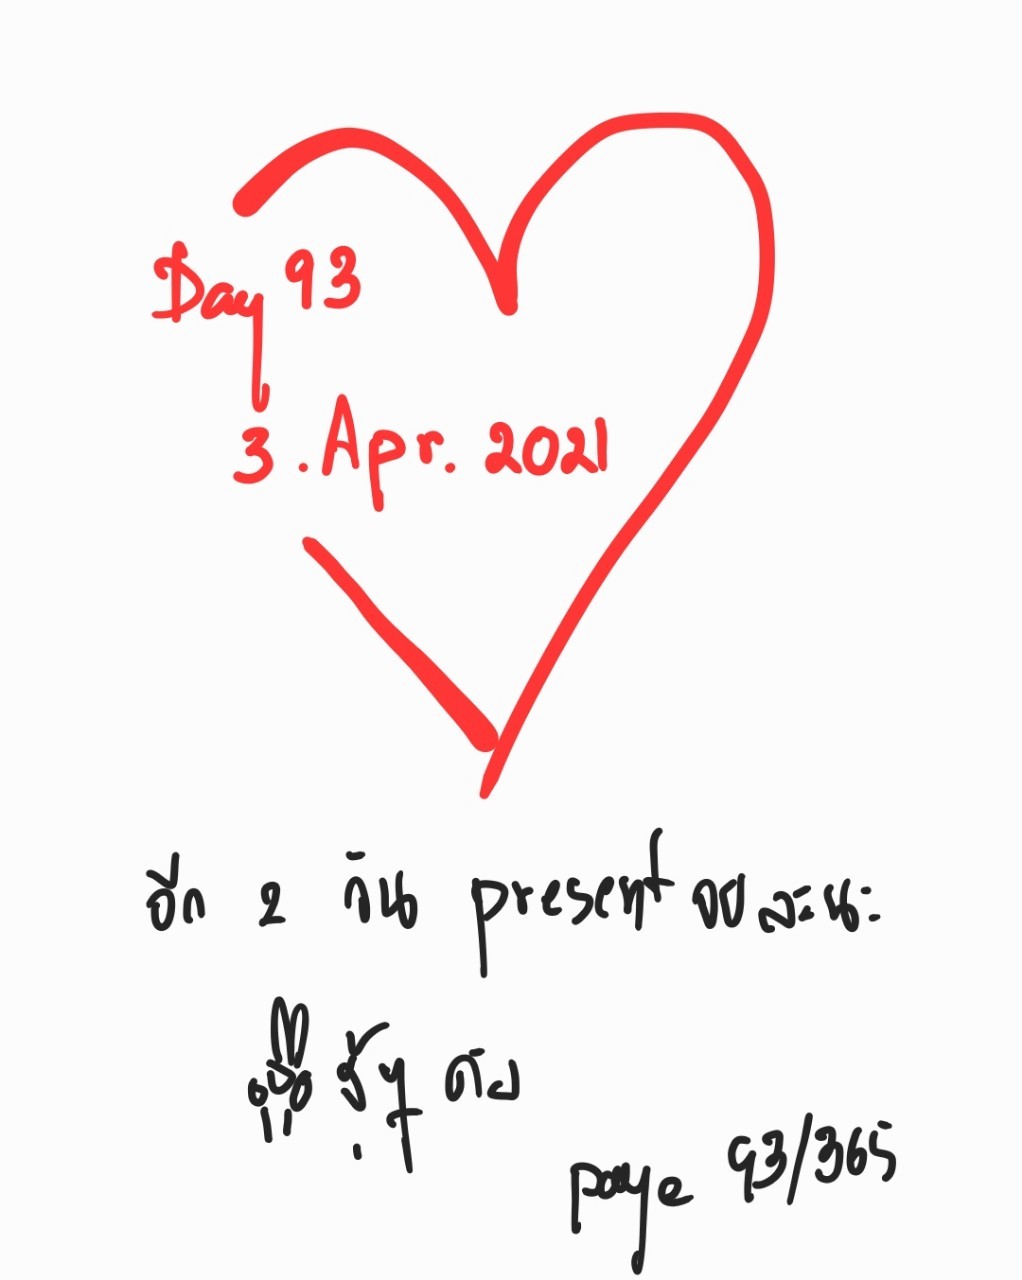 Day 93
3. Apr. 2021
อีก 2 วัน present จบละนะ
page 93/365